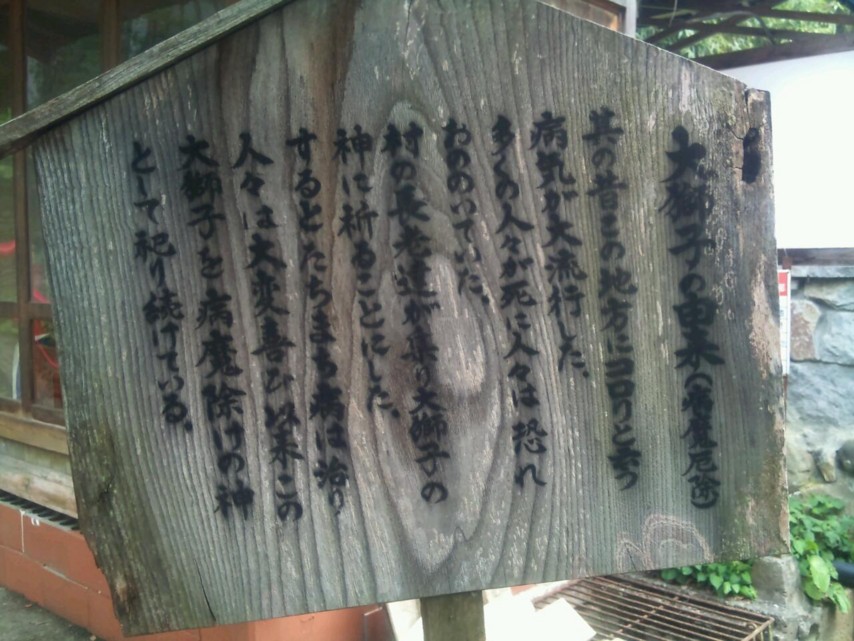 大獅子の由来(病魔厄除)
其の昔この地方にコロリと云う
病気が大流行した、
多くの人々が死に人々は恐れ
おののいていた、
村の長老達が集り大獅子の
神に祈ることにした、
するとたちまち病は治り
人々は大変喜び以来この
大獅子を病魔除けの神
として祀り続けている。